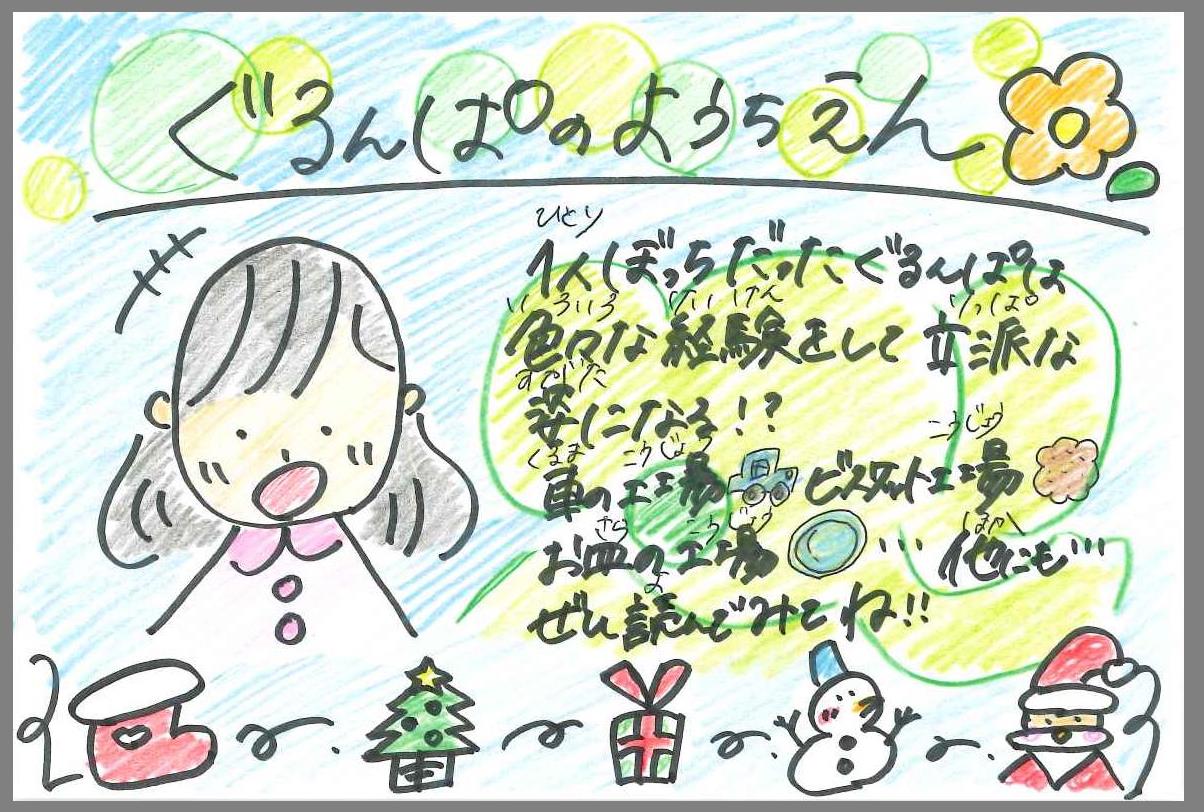 ぐるんぱのようちえん
ひとり
1人ぼっちだったぐるんぱは
いろいろ けいけん りっぱ
色々な経験をして立派な
すがた
姿になる!?
くるま こうじょう こうじょう
車の工場 ビスケット工場
さら こうじょう ほか
お皿の工場 … 他にも…
よ
ぜひ読んでみてね!!